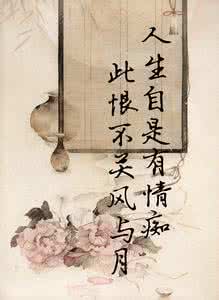 人生自是有情痴
此恨不关风与月